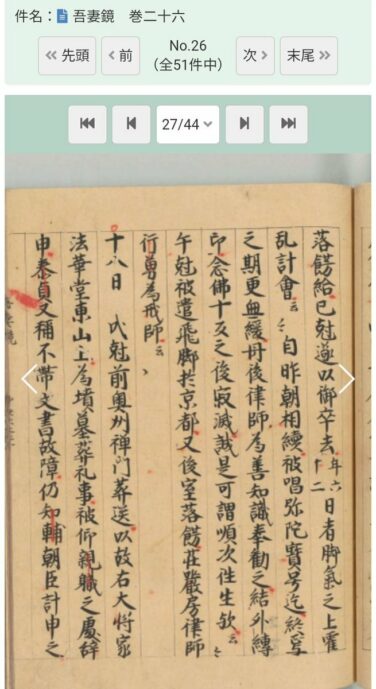 件名：吾妻鏡　巻二十六
先頭
前
No.26
(全51件中)
次
末尾
27/44
落餝給巳尅遂以御卒去年六十二日者脚氣之上霍
乱計會云々自昨朝相續被唱弥陀寳号迄終焉
之期更無緩丹後律師為善知識奉勧之結外縛
印念佛十反之後寂滅誠是可謂順次往生欤云々
午尅被遣飛脚於京都又後室落餝荘嚴房律師
行勇為戒師云々
十八日　戌尅前奥州禅門葬送以故右大将家
法華堂東山上為墳墓葬礼事被仰親職之處辞
申泰貞又稱不帯文書故障仍知輔朝臣計申之